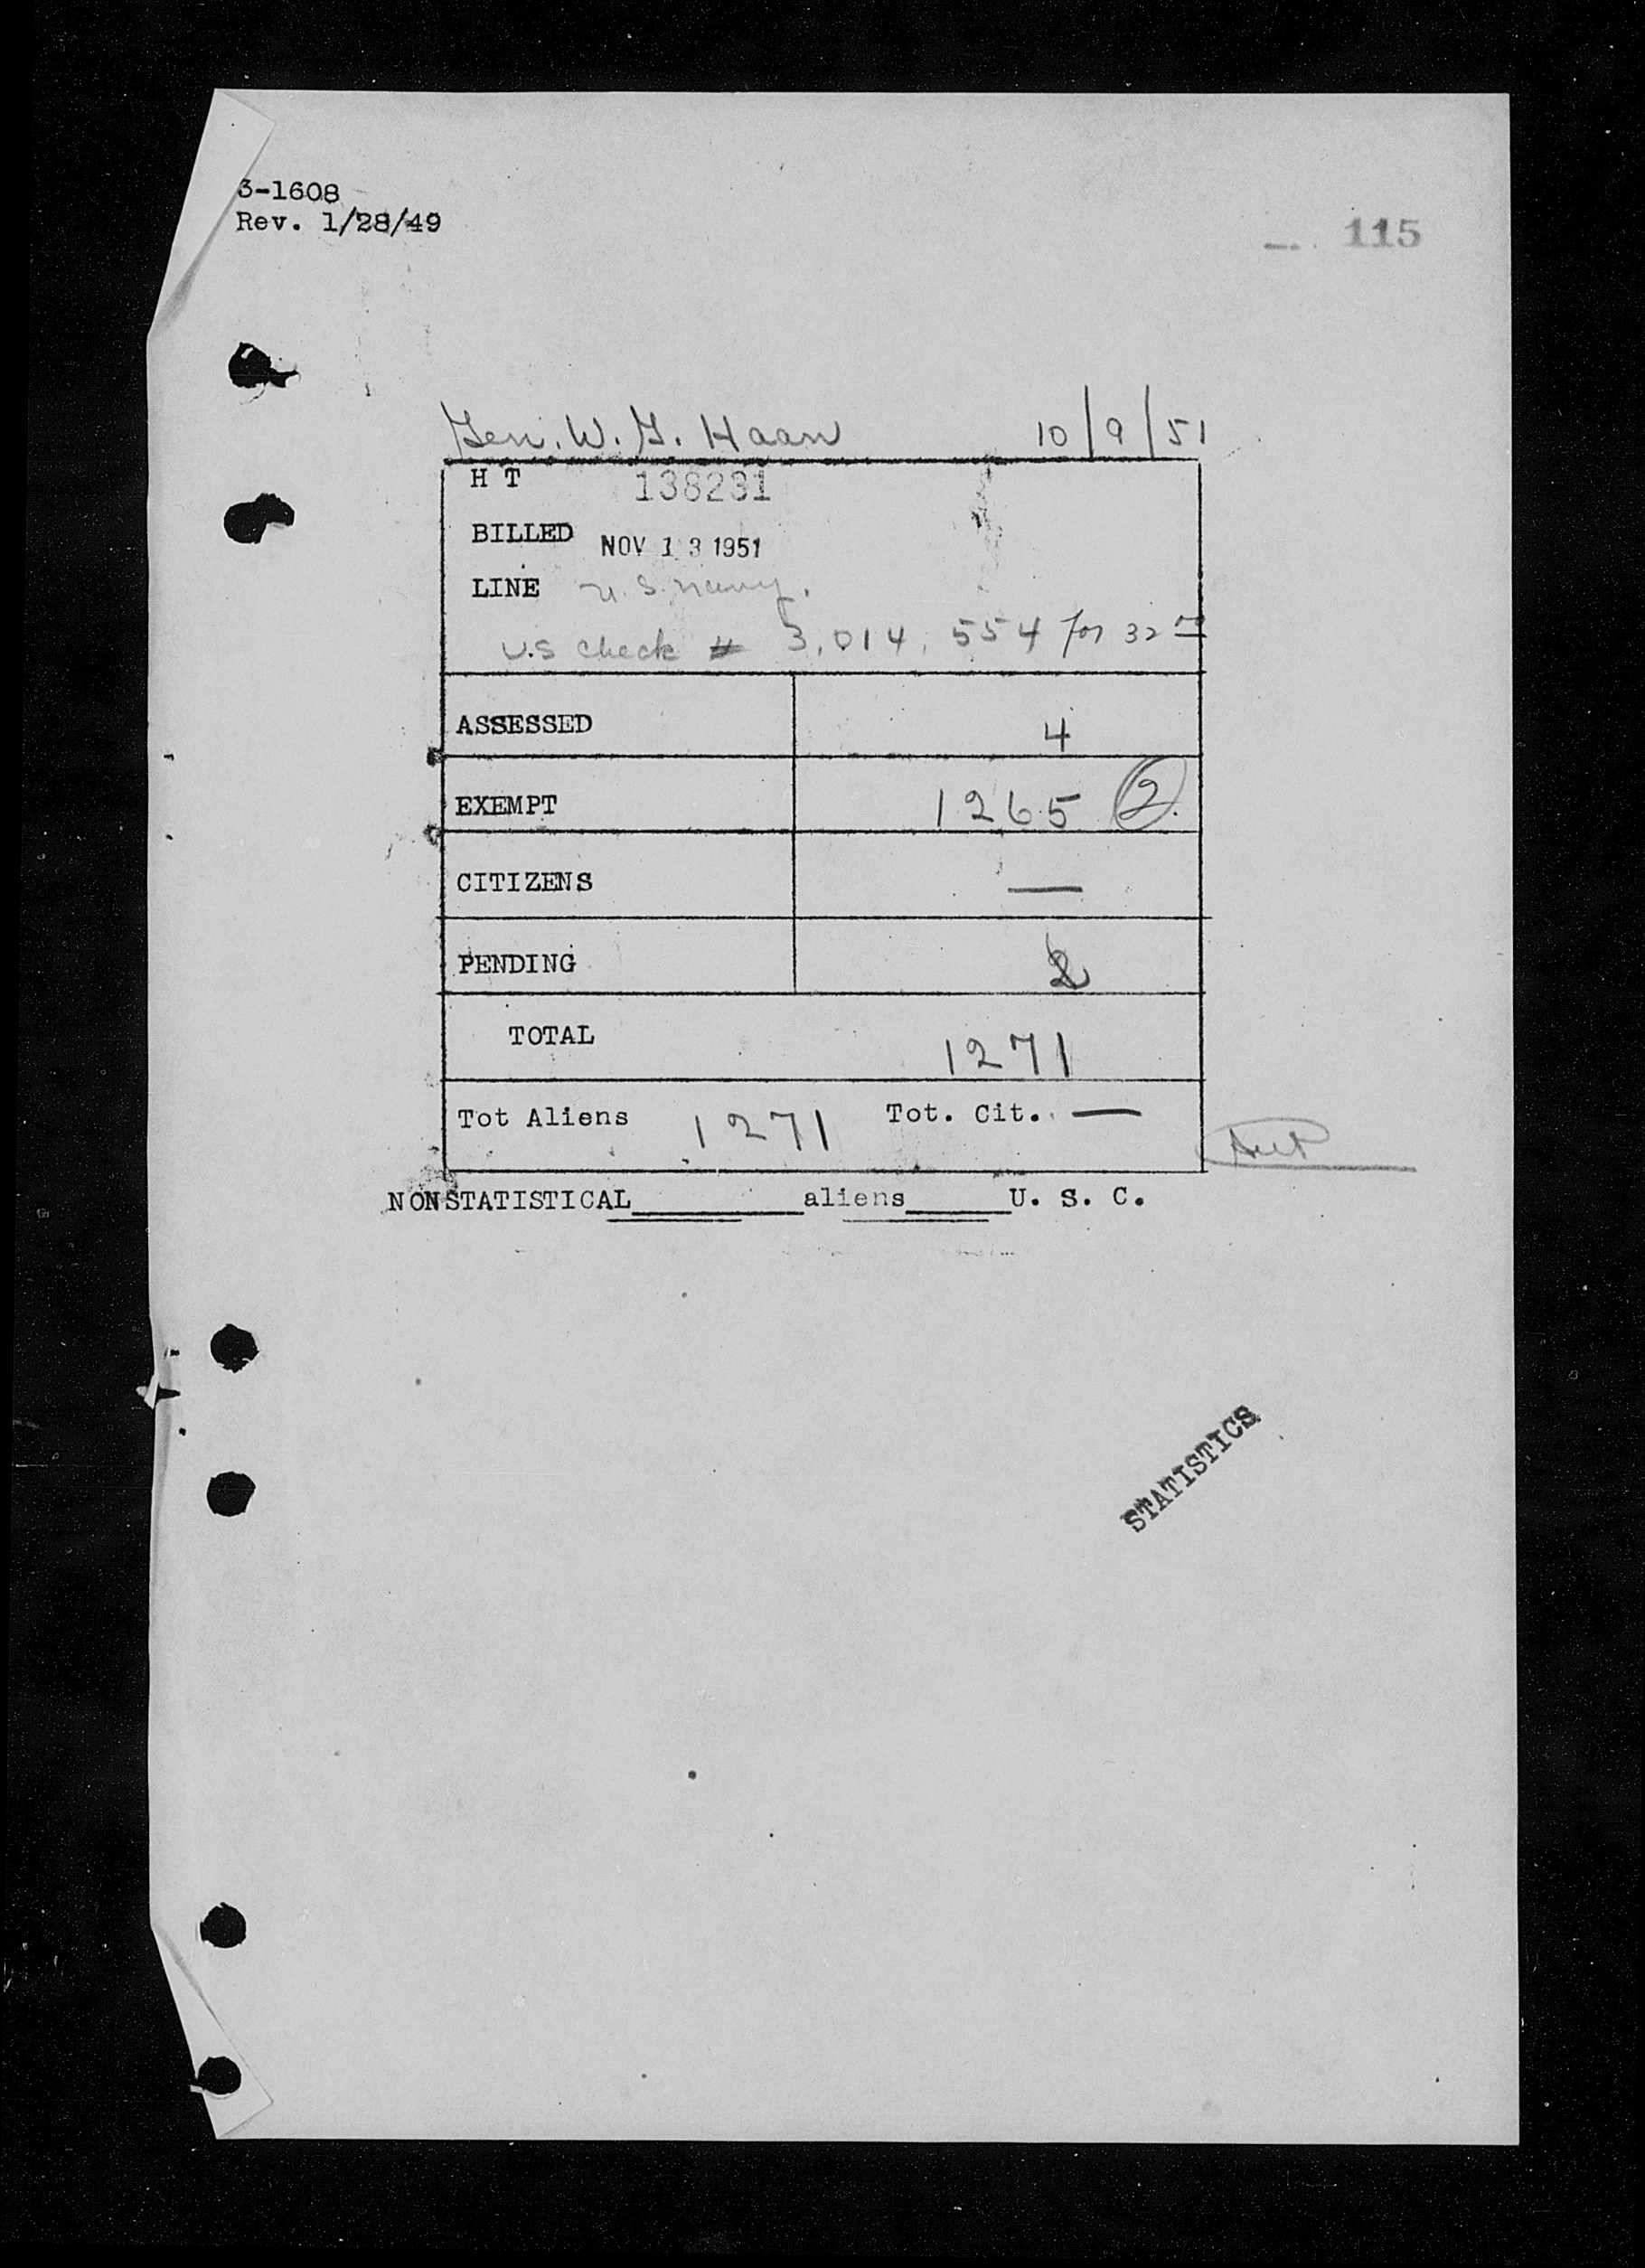 3-1608
Rev. 1/28/49
115
Gen. W. G. Haan 10/9/51
H T 138231
BILLED NOV 13 1951
LINE U.S. Navy.
U.S check # 3,014,554 for 32 00
ASSESSED 4
EXEMPT 1265 2
CITIZENS —
PENDING 2
TOTAL 1271
Tot Aliens 1271 Tot. Cit. —
NONSTATISTICAL________aliens_____U. S. C.
STATISTICS